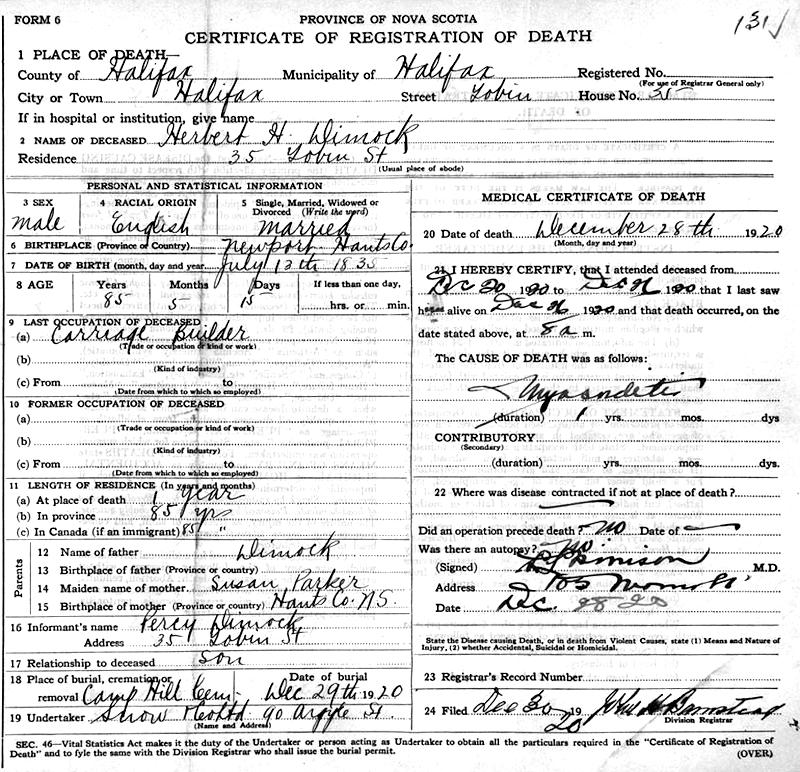 FORM 6
PROVINCE OF NOVA SCOTIA
131
CERTIFICATE OF REGISTRATION OF DEATH
1 PLACE OF DEATH—
County of Halifax Municipality of Halifax Registered No.
(For use of Registrar General only)
City or Town Halifax Street Tobin House No. 35
If in hospital or institution, give name
2 NAME OF DECEASED Herbert H. Dimock
Residence 35 Tobin St
(Usual place of abode)
PERSONAL AND STATISTICAL INFORMATION
3 SEX male
4 RACIAL ORIGIN English
5 Single, Married, Widowed or Divorced (Write the word) Married
6 BIRTHPLACE (Province or Country) Newport Hants Co.
7 DATE OF BIRTH (month, day and year) July 13th 1835
8 AGE Years 85 Months 5 Days 15 If less than one day, hrs. or min.
9 LAST OCCUPATION OF DECEASED
(a) Carriage Builder
(Trade or occupation or kind or work)
(b)
(Kind of industry)
(c) From to
(Date from which to which so employed)
10 FORMER OCCUPATION OF DECEASED
(a)
(Trade or occupation or kind of work)
(b)
(Kind of industry)
(c) From to
(Date from which to which so employed)
11 LENGTH OF RESIDENCE (In years and months)
(a) At place of death 1 year
(b) In province 85 yrs
(c) In Canada (if an immigrant) 85 "
Parents
12 Name of father Dimock
13 Birthplace of father (Province or country)
14 Maiden name of mother Susan Parker
15 Birthplace of mother (Province or country) Hants Co. N.S.
16 Informant's name Percy Dimock
Address 35 Tobin St
17 Relationship to deceased Son
18 Place of burial, cremation or removal Camp Hill Cem. Date of burial Dec 29th 1920
19 Undertaker Snow & Co Ltd 90 Argyle St.
(Name and Address)
MEDICAL CERTIFICATE OF DEATH
20 Date of death December 28th 1920
(Month, day and year)
21 I HEREBY CERTIFY, that I attended deceased from
Dec 20 1920 to Dec 1920 that I last saw
h alive on Dec 1920 and that death occurred, on the
date stated above, at 8 a m.
The CAUSE OF DEATH was as follows:
(duration) 1 yrs. mos. dys
CONTRIBUTORY
(Secondary)
(duration) yrs. mos. dys.
22 Where was disease contracted if not at place of death?
Did an operation precede death? No Date of
Was there an autopsy? No
(Signed) M.D.
Address
Date Dec. 28 20
State the Disease causing Death, or in death from Violent Causes, state (1) Means and Nature of
Injury, (2) whether Accidental, Suicidal or Homicidal.
23 Registrar's Record Number
24 Filed Dec 30 1920
Division Registrar
SEC. 46—Vital Statistics Act makes it the duty of the Undertaker or person acting as Undertaker to obtain all the particulars required in the "Certificate of Registration of
Death" and to fyle the same with the Division Registrar who shall issue the burial permit. (OVER)